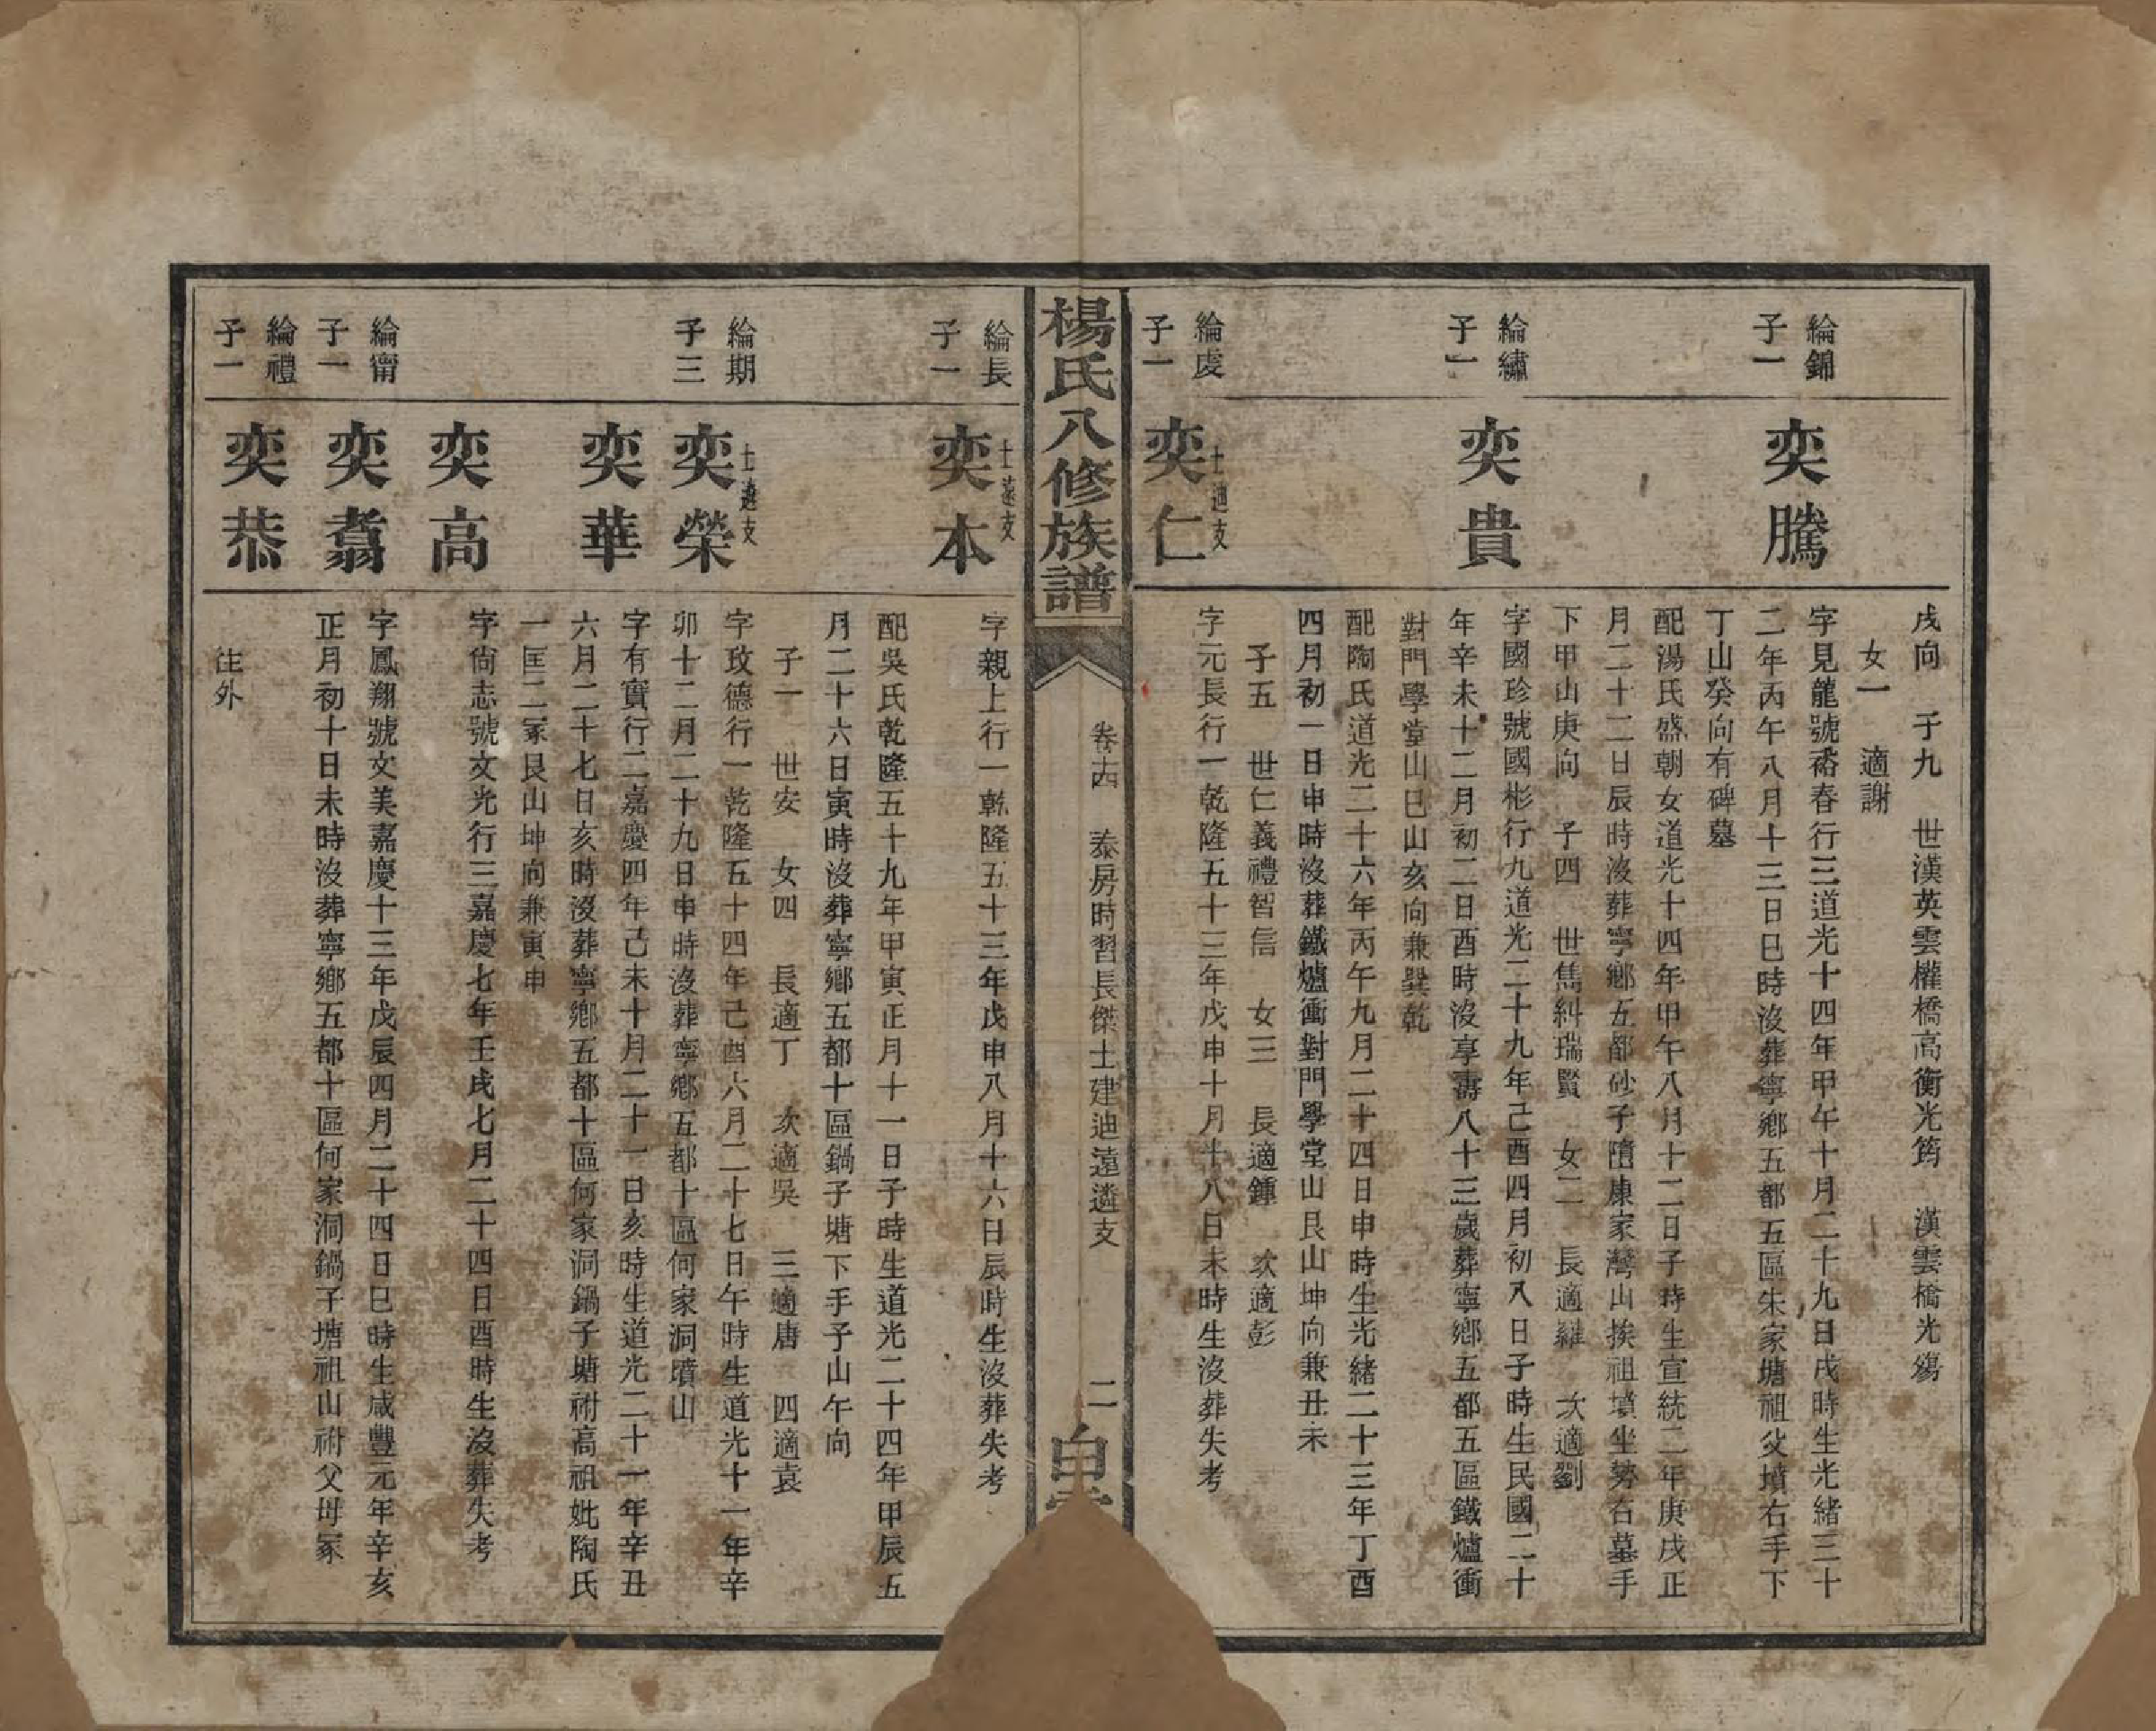 戌向　子九　世漢英雲權橋高衡光筠　漢雲橋光殤
女一　適謝
綸錦
子一
奕騰
字見龍號裕春行三道光十四年甲午十月二十九日戌時生光緒三十
二年丙午八月十三日巳時沒葬寧鄉五都五區朱家塘祖父墳右手下
丁山癸向有碑墓
配湯氏盛朝女道光十四年甲午八月十二日子時生宣統二年庚戌正
月二十二日辰時沒葬寧鄉五都砂子墮康家灣山挨祖墳坐勢右墓手
下甲山庚向　子四　世雋糾瑞賢　女二　長適羅　次適劉
綸繡
子一
奕貴
字國珍號國彬行九道光二十九年己酉四月初八日子時生民國二十
年辛未十二月初二日酉時沒享壽八十三歲葬寧鄉五都五區鐵爐衝
對門學堂山巳山亥向兼巽乾
配陶氏道光二十六年丙午九月二十四日申時生光緒二十三年丁酉
四月初一日申時沒葬鐵爐衝對門學堂山艮山坤向兼丑未
子五　世仁義禮智信　女三　長適鍾　次適彭
綸虔
子一
士迪支
奕仁
字元長行一乾隆五十三年戊申十月十八日未時生沒葬失考
楊氏八修族譜
卷十四　泰房時習長傑士建迪遠遴支
二
白
綸長
子一
士遠支
奕本
字親上行一乾隆五十三年戊申八月十六日辰時生沒葬失考
配吳氏乾隆五十九年甲寅正月十一日子時生道光二十四年甲辰五
月二十六日寅時沒葬寧鄉五都十區鍋子塘下手子山午向
子一　世安　女四　長適丁　次適吳　三適唐　四適袁
綸期
子三
士遴支
奕榮
字玫德行一乾隆五十四年己酉六月二十七日午時生道光十一年辛
卯十二月二十九日申時沒葬寧鄉五都十區何家洞墳山
奕華
字有實行二嘉慶四年己未十月二十一日亥時生道光二十一年辛丑
六月二十七日亥時沒葬寧鄉五都十區何家洞鍋子塘祔高祖妣陶氏
一匡二冢艮山坤向兼寅申
奕高
字尙志號文光行三嘉慶七年壬戌七月二十四日酉時生沒葬失考
綸甯
子一
奕翥
字鳳翔號文美嘉慶十三年戊辰四月二十四日巳時生咸豐元年辛亥
正月初十日未時沒葬寧鄉五都十區何家洞鍋子塘祖山祔父母冢
綸禮
子一
奕恭
往外